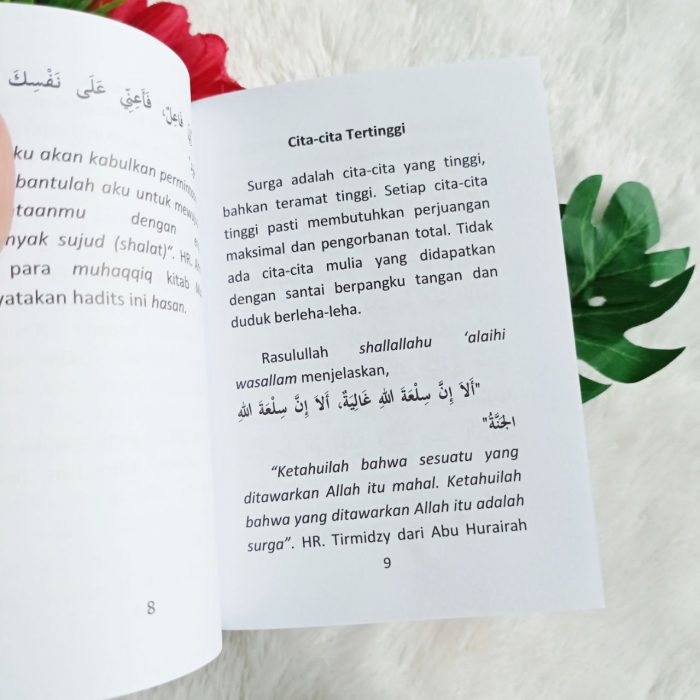 فَأَعِنِّي عَلَى نَفْسِكَ
ku akan kabulkan
bantulah aku untuk
taanmu dengan
nyak sujud (shalat)”. HR.
para muhaqqiq kitab
yatakan hadits ini hasan.
8
Cita-cita Tertinggi
Surga adalah cita-cita yang tinggi,
bahkan teramat tinggi. Setiap cita-cita
tinggi pasti membutuhkan perjuangan
maksimal dan pengorbanan total. Tidak
ada cita-cita mulia yang didapatkan
dengan santai berpangku tangan dan
duduk berleha-leha.
Rasulullah shallallahu ‘alaihi
wasallam menjelaskan,
"أَلاَ إِنَّ سِلْعَةَ اللهِ غَالِيَةٌ، أَلاَ إِنَّ سِلْعَةَ اللهِ
الجَنَّةُ"
“Ketahuilah bahwa sesuatu yang
ditawarkan Allah itu mahal. Ketahuilah
bahwa yang ditawarkan Allah itu adalah
surga”. HR. Tirmidzy dari Abu Hurairah
9